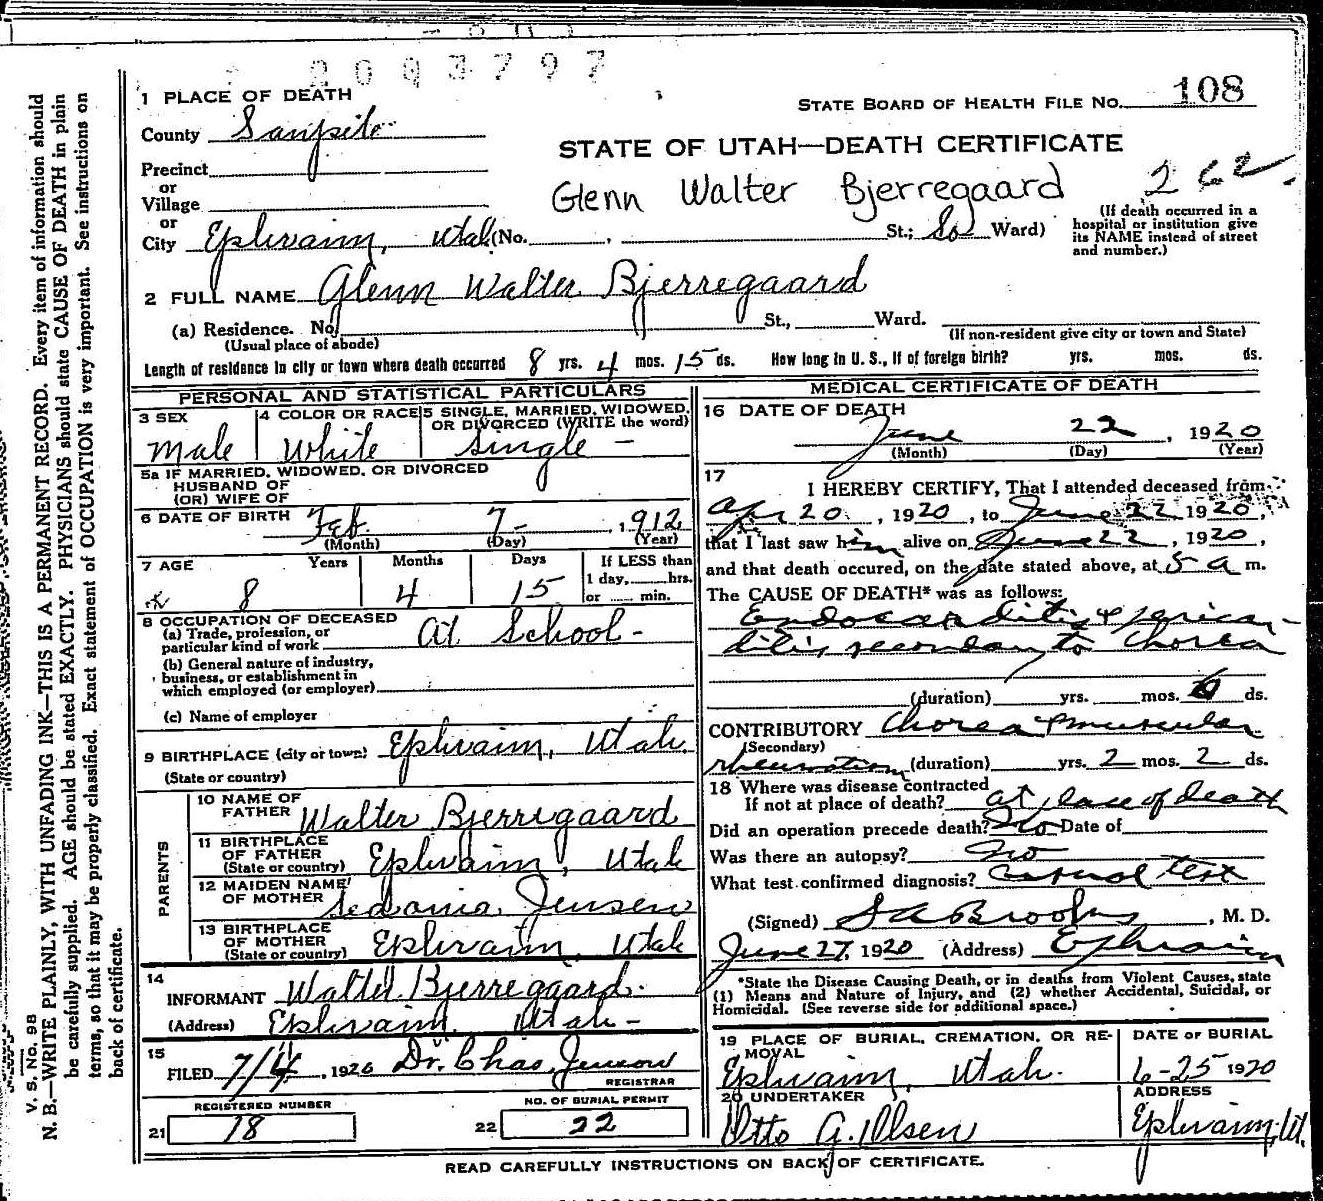 2003797
1 PLACE OF DEATH
STATE BOARD OF HEALTH FILE NO. 108
County Sanpete
STATE OF UTAH—DEATH CERTIFICATE
Precinct
or
Village
Glenn Walter Bjerregaard 262.
or
City Ephraim, Utah (No. , St.; So Ward)
(If death occurred in a
hospital or institution give
its NAME instead of street
and number.)
2 FULL NAME Glenn Walter Bjerregaard
(a) Residence. No. St., Ward.
(Usual place of abode)
(If non-resident give city or town and State)
Length of residence in city or town where death occurred 8 yrs. 4 mos. 15 ds. How long in U. S., if of foreign birth? yrs. mos. ds.
PERSONAL AND STATISTICAL PARTICULARS
3 SEX
Male
4 COLOR OR RACE
White
5 SINGLE, MARRIED, WIDOWED,
OR DIVORCED (WRITE the word)
Single -
5a IF MARRIED, WIDOWED, OR DIVORCED
HUSBAND OF
(OR) WIFE OF
6 DATE OF BIRTH Feb. 7- , 1912
(Month) (Day) (Year)
7 AGE Years Months Days
8 4 15
If LESS than
1 day, hrs.
or min.
8 OCCUPATION OF DECEASED
(a) Trade, profession, or
particular kind of work At School -
(b) General nature of industry,
business, or establishment in
which employed (or employer)
(c) Name of employer
9 BIRTHPLACE (city or town) Ephraim, Utah
(State or country)
PARENTS
10 NAME OF
FATHER Walter Bjerregaard
11 BIRTHPLACE
OF FATHER
(State or country) Ephraim, Utah
12 MAIDEN NAME
OF MOTHER Sedonia Jensen
13 BIRTHPLACE
OF MOTHER
(State or country) Ephraim, Utah
14
INFORMANT Walter Bjerregaard.
(Address) Ephraim, Utah -
15
FILED 7/4, 1920 Dr. Chas.
REGISTRAR
REGISTERED NUMBER
21 18
NO. OF BURIAL PERMIT
22 22
MEDICAL CERTIFICATE OF DEATH
16 DATE OF DEATH
June 22, 1920
(Month) (Day) (Year)
17
I HEREBY CERTIFY, That I attended deceased from
Apr 20, 1920, to June 22 1920,
that I last saw him alive on June 22, 1920,
and that death occured, on the date stated above, at 5 a m.
The CAUSE OF DEATH* was as follows:
Endocarditis & perican-
ditis secondary to Chorea
(duration) yrs. mos. 6 ds.
CONTRIBUTORY Chorea & muscular
(Secondary)
rheumatism (duration) yrs. 2 mos. 2 ds.
18 Where was disease contracted
If not at place of death? at place of death
Did an operation precede death? No Date of
Was there an autopsy? No
What test confirmed diagnosis? test
(Signed) S A Brooks, M. D.
June 27, 1920 (Address) Ephraim
*State the Disease Causing Death, or in deaths from Violent Causes, state
(1) Means and Nature of Injury, and (2) whether Accidental, Suicidal, or
Homicidal. (See reverse side for additional space.)
19 PLACE OF BURIAL, CREMATION, OR RE-
MOVAL
Ephraim, Utah.
DATE OF BURIAL
6-25 1920
20 UNDERTAKER
Otto A. Olsen
ADDRESS
Ephraim, Ut.
READ CAREFULLY INSTRUCTIONS ON BACK OF CERTIFICATE.
V. S. No. 98
N. B.—WRITE PLAINLY, WITH UNFADING INK—THIS IS A PERMANENT RECORD. Every item of information should
be carefully supplied. AGE should be stated EXACTLY. PHYSICIANS should state CAUSE OF DEATH in plain
terms, so that it may be properly classified. Exact statement of OCCUPATION is very important. See instructions on
back of certificate.